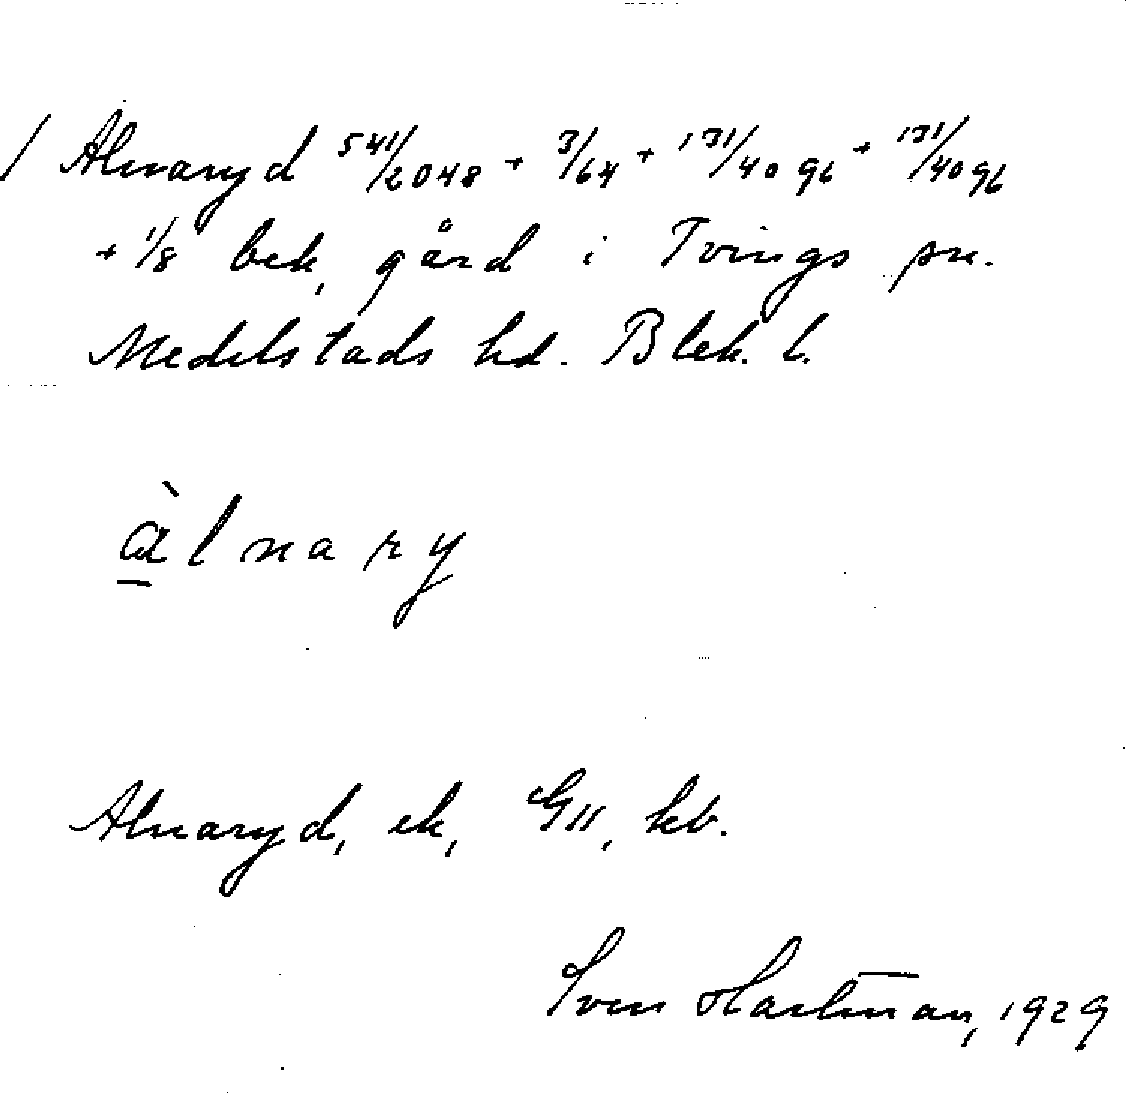 / Alnaryd 541/2048 + 3/64 + 131/4096 + 131/4096
+ 1/8 bek, gård i Tvings sn.
Medelstads hd. Blek. l.
à̱lnary
Alnaryd, ek, GII, kb.
Sven Hartman, 1929